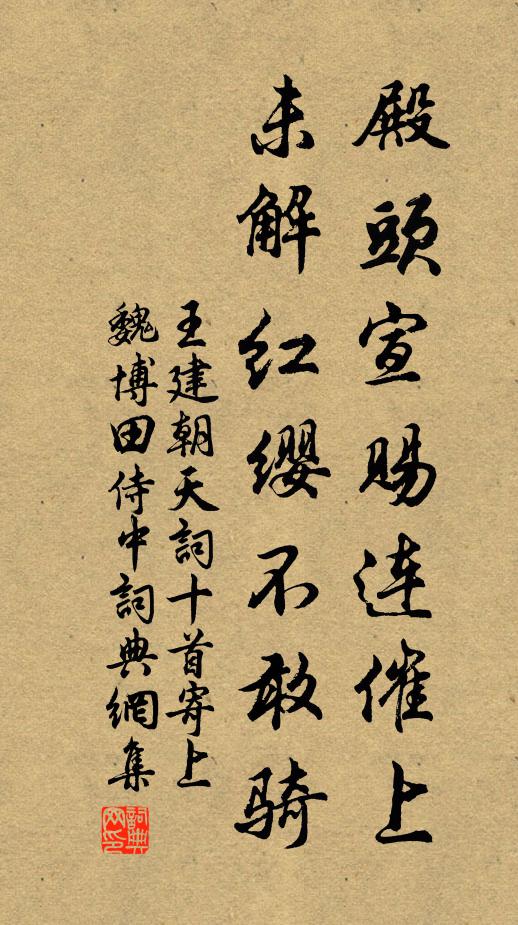 殿頭宣賜連催上
未解紅纓不敢騎
王建朝天詞十首寄上
魏博田侍中詞典網集
詞典网印